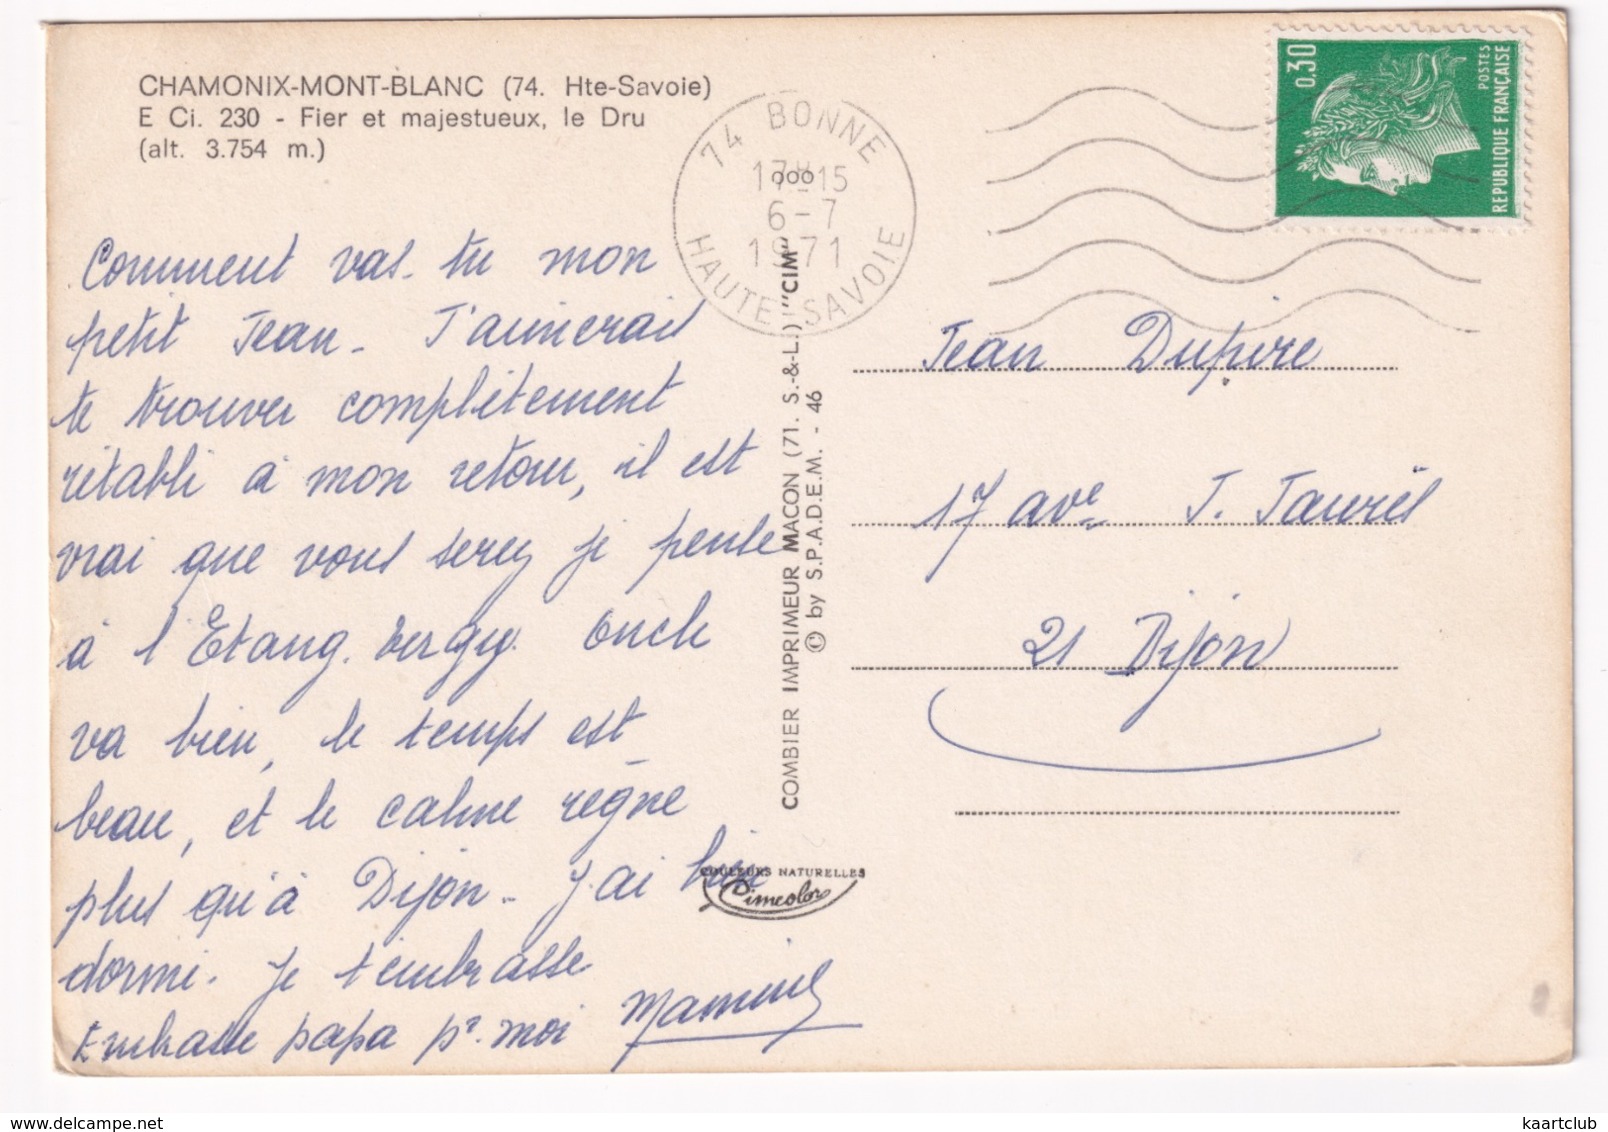 CHAMONIX-MONT-BLANC (74. Hte-Savoie)
E Ci. 230 - Fier et majestueux, le Dru
(alt. 3.754 m.)
74 BONNE
17H15
6-7
1971
HAUTE SAVOIE
0,30
POSTES
REPUBLIQUE FRANÇAISE
Comment vas-tu mon
petit Jean - J'aimerais
te trouver complètement
rétabli à mon retour, il est
vrai que vous serez je pense
à l'Etang Vergy. Oncle
va bien, le temps est
beau, et le calme règne
plus qu'à Dijon - J'ai bien
dormi. Je t'embrasse
Embrasse papa pr. moi
COMBIER IMPRIMEUR MACON (71. S.-&-L.) "CIM"
© by S.P.A.D.E.M. - 46
COULEURS NATURELLES
Cimcolor
Jean Dupire
17 ave J. Jaurès
21 Dijon
kaartclub